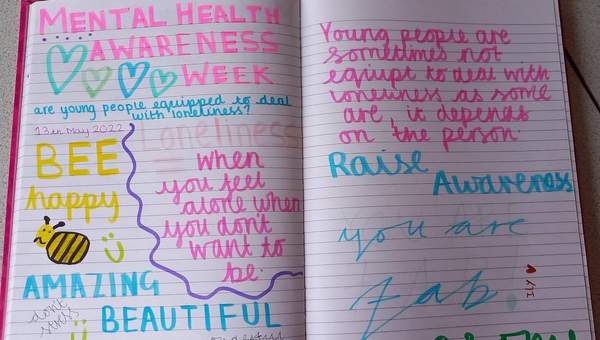 MENTAL HEALTH
AWARENESS
WEEK
are young people equipped to deal
with loneliness?
13th May 2022
Loneliness
BEE
happy
when
you feel
alone when
you don't
want to
be.
AMAZING
don't
stress
BEAUTIFUL
Young people are
sometimes not
eqiupt to deal with
lonliness as some
are, it depends
on the person.
Raise
Awareness
you are
fab!
ILY